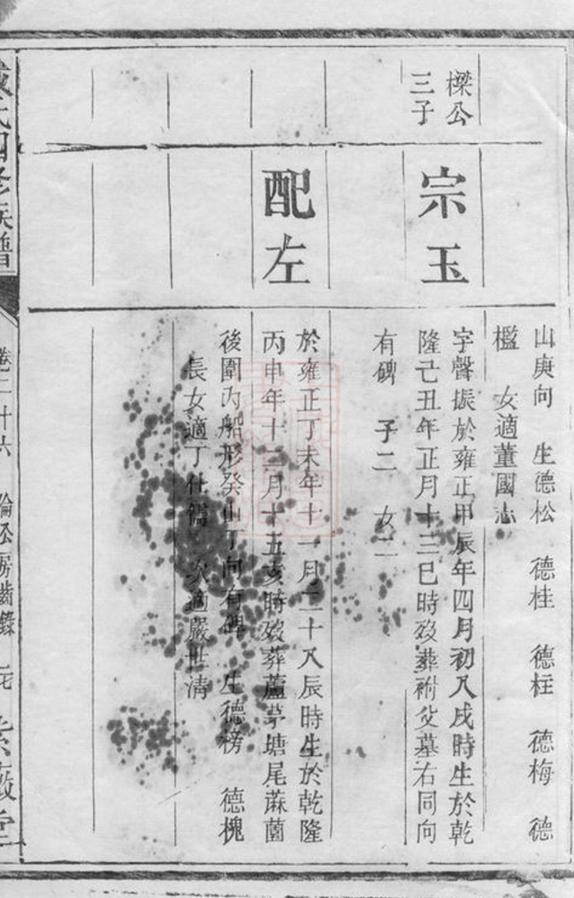 山庚向　生德松　德桂　德柱　德梅　德
楹　女適董國志
樑公
三子
宗玉
字聲振於雍正甲辰年四月初八戌時生於乾
隆己丑年正月十三巳時歿葬祔父墓右同向
有碑　子二　女二
配左
於雍正丁未年十一月二十八辰時生於乾隆
丙申年十二月十五亥時歿葬蘆茅塘尾蔴薗
後圍內船形癸山丁向有碑　生德榜　德槐
長女適丁仕儒　次適嚴世清
氏四修族譜
卷二十六　倫公房齒錄　紫薇堂